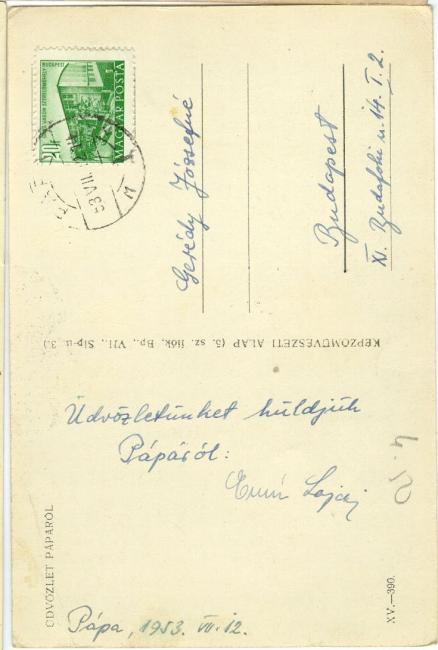 Üdvözletünket küldjük
Pápáról:
Pápa, 1953. VII. 12.
ÜDVÖZLET PÁPÁRÓL
XV.—390.
KÉPZŐMŰVÉSZETI ALAP (5. sz. fiók, Bp., VII., Síp-u. 3.)
Gerédy Józsefné
Budapest
XI. Budafoki u. 14. I. 2.
MAGYAR POSTA
BUDAPEST
20f
53 VII